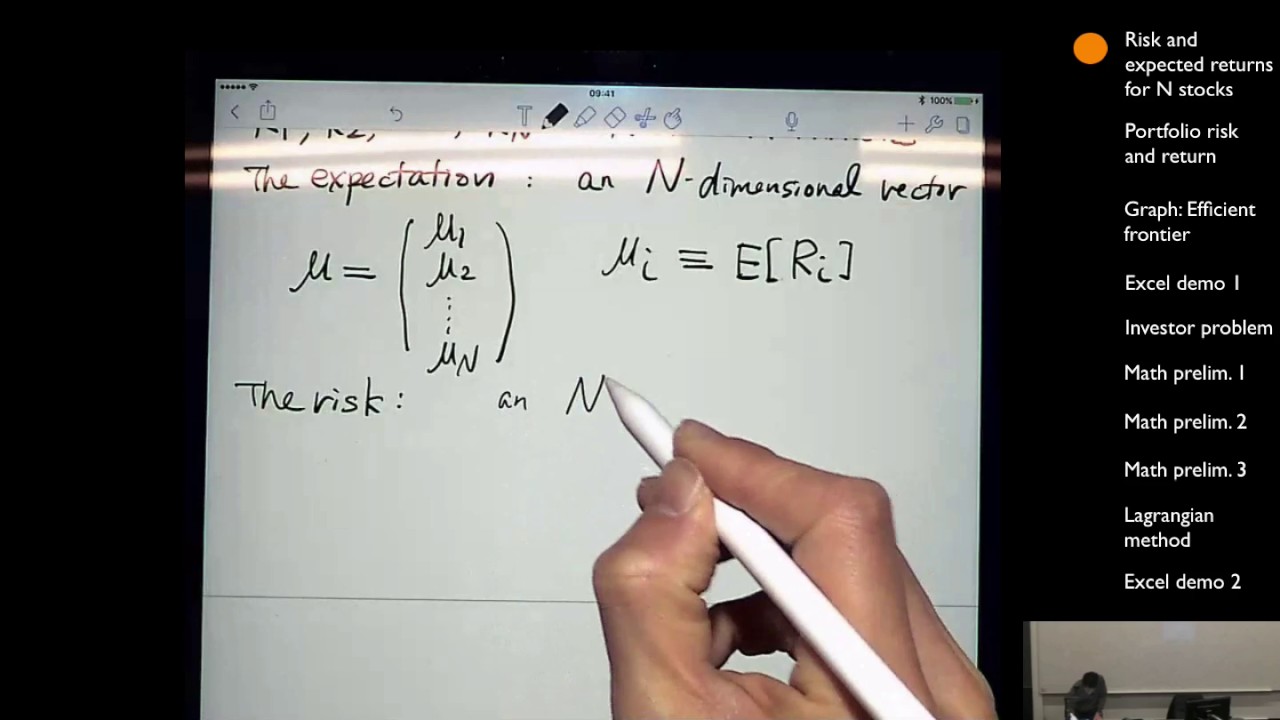 09:41
100%
T
The expectation : an N-dimensional vector
μ = ( μ1 μ2 ⋮ μN ) μi ≡ E[Ri]
The risk: an N
Risk and
expected returns
for N stocks
Portfolio risk
and return
Graph: Efficient
frontier
Excel demo 1
Investor problem
Math prelim. 1
Math prelim. 2
Math prelim. 3
Lagrangian
method
Excel demo 2